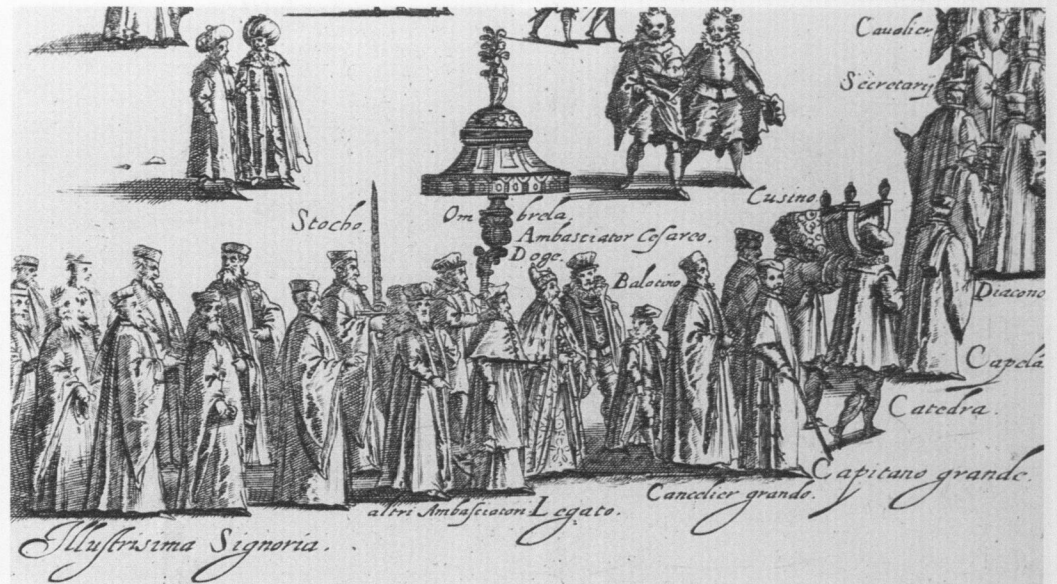 Cavalier
Secretarij
Stocho.
Ombrela.
Cusino.
Ambasciator Cesareo.
Doge.
Balotino
Diacono
Capela
Catedra.
Capitano grande.
Cancelier grando.
altri Ambasciatori Legato.
Illustrisima Signoria.